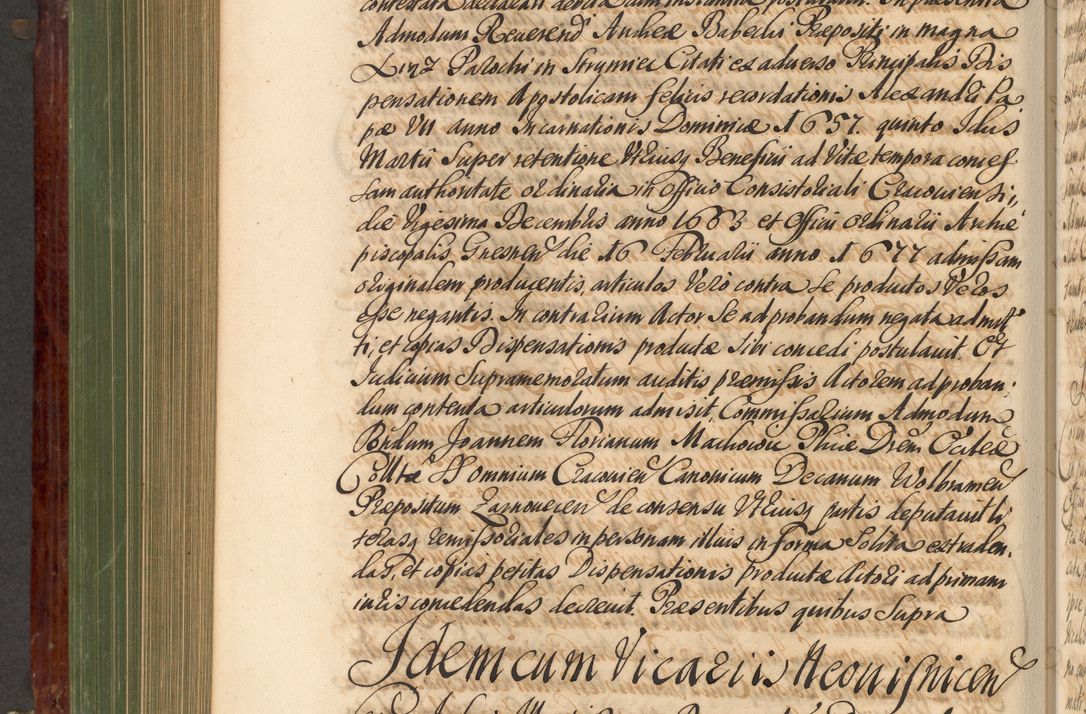 contestata declarari
Admodum Reuerendi Andreæ Babecki Præpositi in magna
Xinz Parochi in Strymiec Citati ex aduerso Principalis Dis
pensationem Apostolicam felicis recordationis Alexandri Pa,
pæ VII anno Incarnationis Dominicæ 1657. quinto Idus
Martii Super retentione Vtriusq Beneficii ad Vitæ tempora concef
sam authoritate ordinaria in Officio Consistoriali Cracouiensi,
die Vigesima Decembris anno 1663 et Officii ordinarii Archie
piscopalis Gnesnen die 16 Februarii anno 1677 admifsam
originalem producentis, articulos Vero contra se productos Veros
efse negantis. In contrarium Actor Se ad probandum negata admit
ti, et copias Dispensationis productæ Sibi concedi postulauit. Et
Iudicium Supramemoratum auditis præmifsis Actorem ad proban,
dum contenta articulorum admisit, Commifsarium Admodum
Rndum Joannem Florianum Machowic Phiæ Drem
Colltæ SS Omnium Cracouien Canonicum Decanum Wolbramen
Præpositum Zarnouecen de consensu Vtriusq partis deputauit li
terasq remifsoriales in personam illius in forma Solita extraden,
das, et copias petitas Dispensationis productæ Actori ad primam
iuris concedendas decreuit. Præsentibus quibus Supra
Idem cum Vicariis